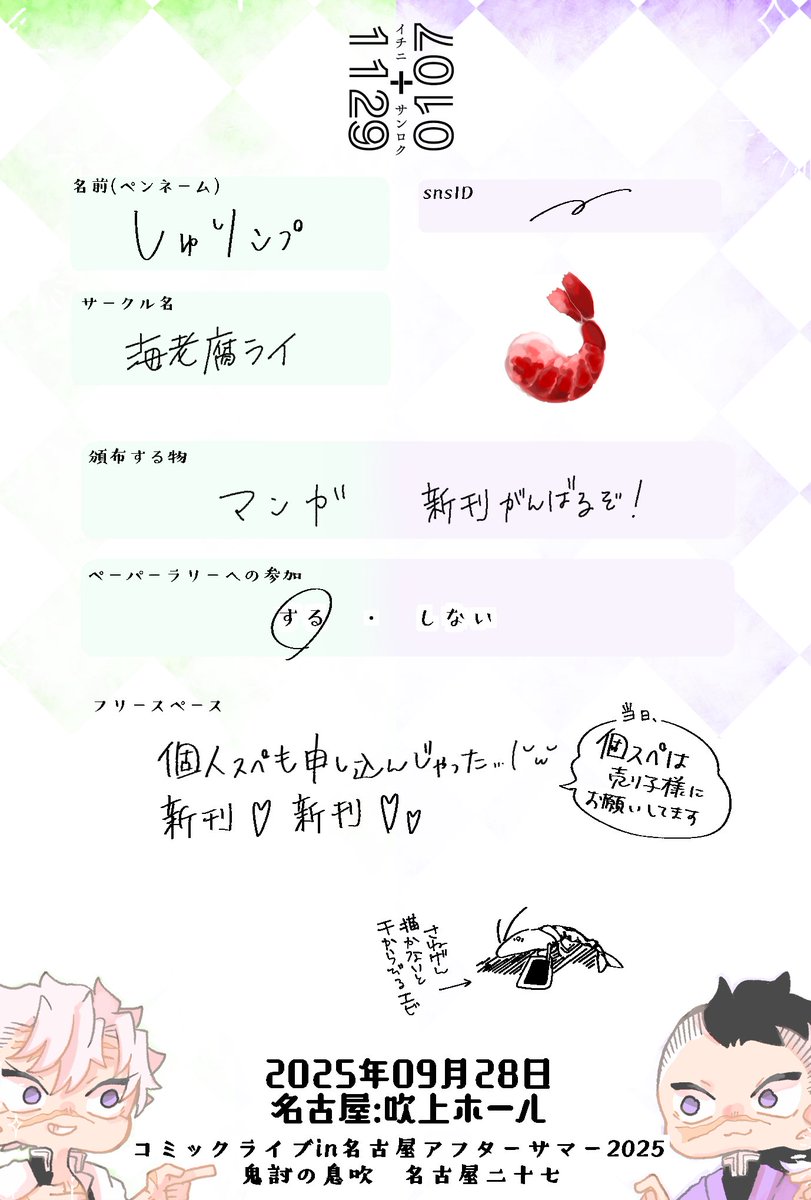 0107
1129
+
イチニ
サンロク
名前(ペンネーム)
しゅリンプ
snsID
サークル名
海老腐ライ
頒布する物
マンガ 新刊がんばるぞ!
ペーパーラリーへの参加
する ・ しない
フリースペース
個人スペも申し込んじゃった…
新刊♡新刊♡♡
当日、
個スペは
売り子様に
お願いしてます
さねげん
描かないと
干からびるエビ
→
2025年09月28日
名古屋:吹上ホール
コミックライブin名古屋アフターサマー2025
鬼討の息吹 名古屋二十七